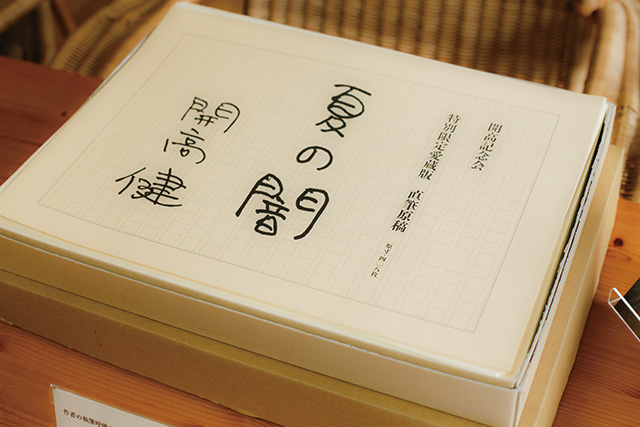 開高記念会
特別限定愛蔵版 直筆原稿
夏の闇
開高
健
作者の執筆呼吸